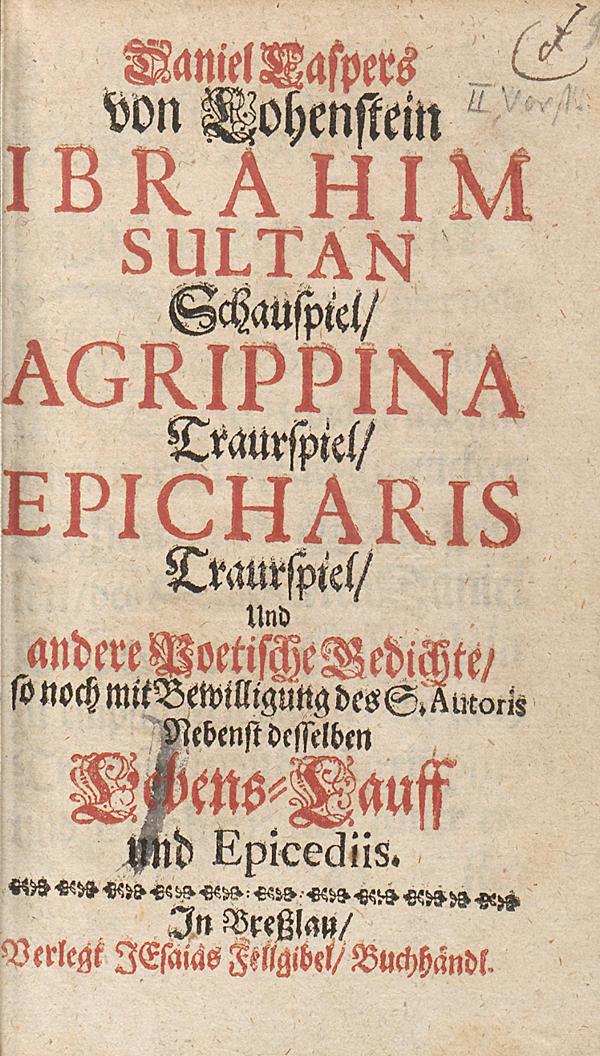 Daniel Caspers
von Lohenstein
IBRAHIM
SULTAN
Schauſpiel/
AGRIPPINA
Traurſpiel/
EPICHARIS
Traurſpiel/
Und
andere Poetiſche Gedichte/
ſo noch mit Bewilligung des S. Autoris
Nebenſt deſſelben
Lebens-Lauff
und Epicediis.
In Breßlau/
Verlegt JEſaias Fellgibel/ Buchhändl.